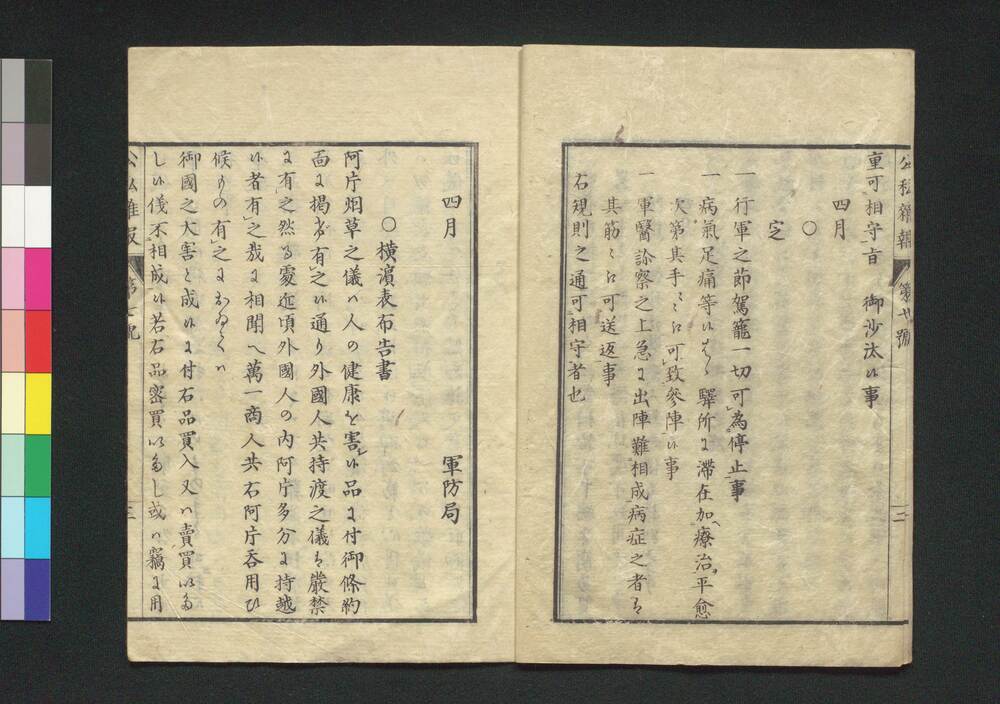 公私雜報
第廿號
重可相守旨 御沙汰候事
四月
〇
定
一行軍之節駕籠一切可為停止事
一病氣足痛等候ハヾ驛所ニ滯在加療治平愈
次第其手〻〻江可致參陣候事
一軍醫診察之上急ニ出陣難相成病症之者ハ
其筋〻江可送返事
右規則之通可相守者也
四月
軍防局
〇橫濱表布告書
阿片烟草之儀ハ人の健康を害し候品ニ付御條約
面ニ揭ヶ有之候通り外國人共持渡之儀ハ嚴禁
ニ有之然る處近頃外國人の内阿片多分ニ持越
候者有之哉ニ相聞へ萬一商人共右阿片呑用ひ
候もの有之におゐてハ
御國之大害と成候ニ付右品買入又ハ賣買いた
し候儀不相成候若右品密買いたし或ハ竊ニ用